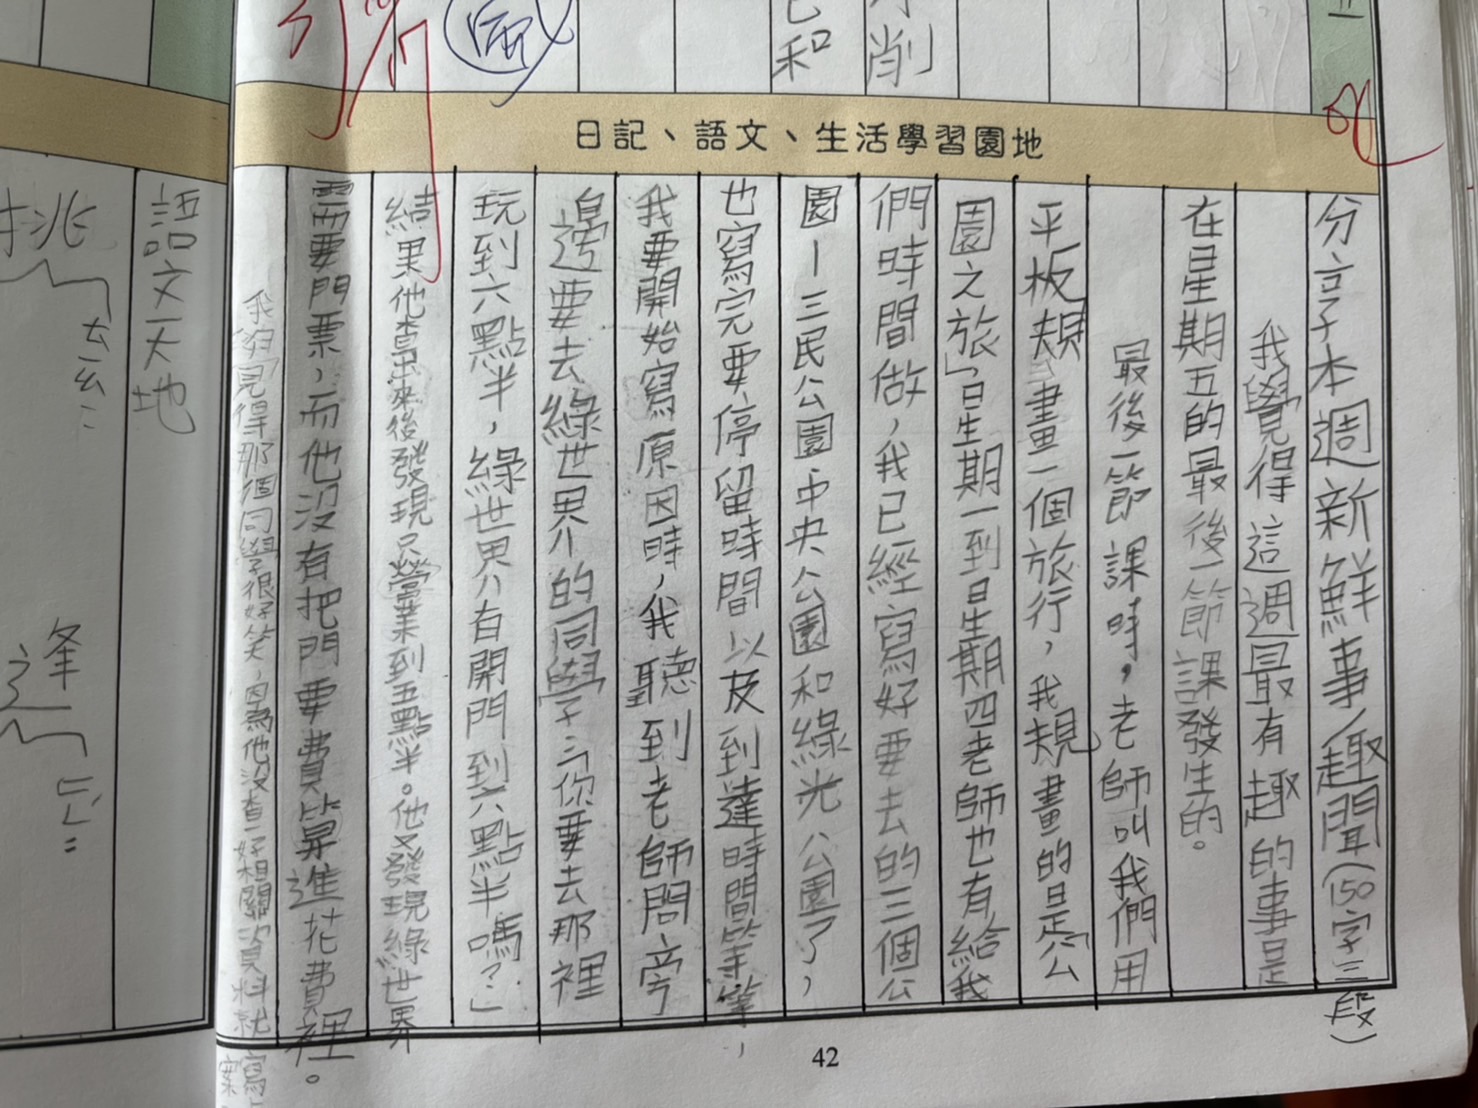 和
削
日記、語文、生活學習園地
分享本週新鮮事/趣聞(150字三段)
我覺得這週最有趣的事是
在星期五的最後一節課發生的。
最後一節課時，老師叫我們用
平板規畫一個旅行，我規畫的是「公
園之旅」，星期一到星期四老師也有給我
們時間做，我已經寫好要去的三個公
園—三民公園中央公園和綠光公園了，
也寫完要停留時間以及到達時間等等，
我要開始寫原因時，我聽到老師問旁
邊要去綠世界的同學：「你要去那裡
玩到六點半，綠世界有開門到六點半嗎？」
結果他查出來後發現只營業到五點半。他又發現綠世界
需要門票，而他沒有把門要費算進花費裡。
我覺得那個同學很好笑，因為他沒查好相關資料就寫
42
語文天地
挑
逢